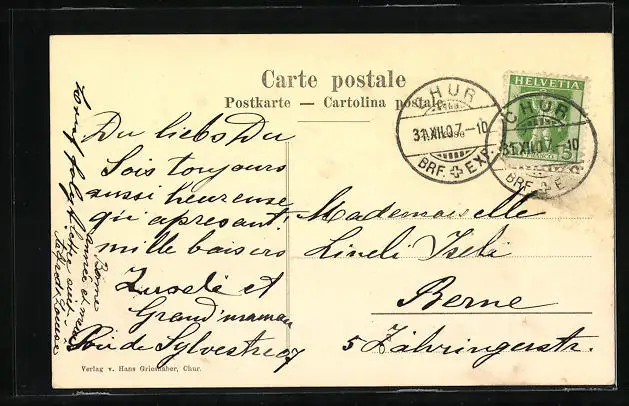 Carte postale
Postkarte — Cartolina postale
HELVETIA
5
CHUR
31.XII.07.-10
BRF. EXP.
CHUR
31.XII.07.-10
BRF. EXP.
Du liebs Du
Sois toujours
aussi heureuse
qu'apresant.
mille baisers
et
Grand'maman
de Sylvestre 07
Bonne
Année et
Mademoiselle
Lineli Iseli
Berne
5 Zähringerstr.
Verlag v. Hans Grieshaber, Chur.